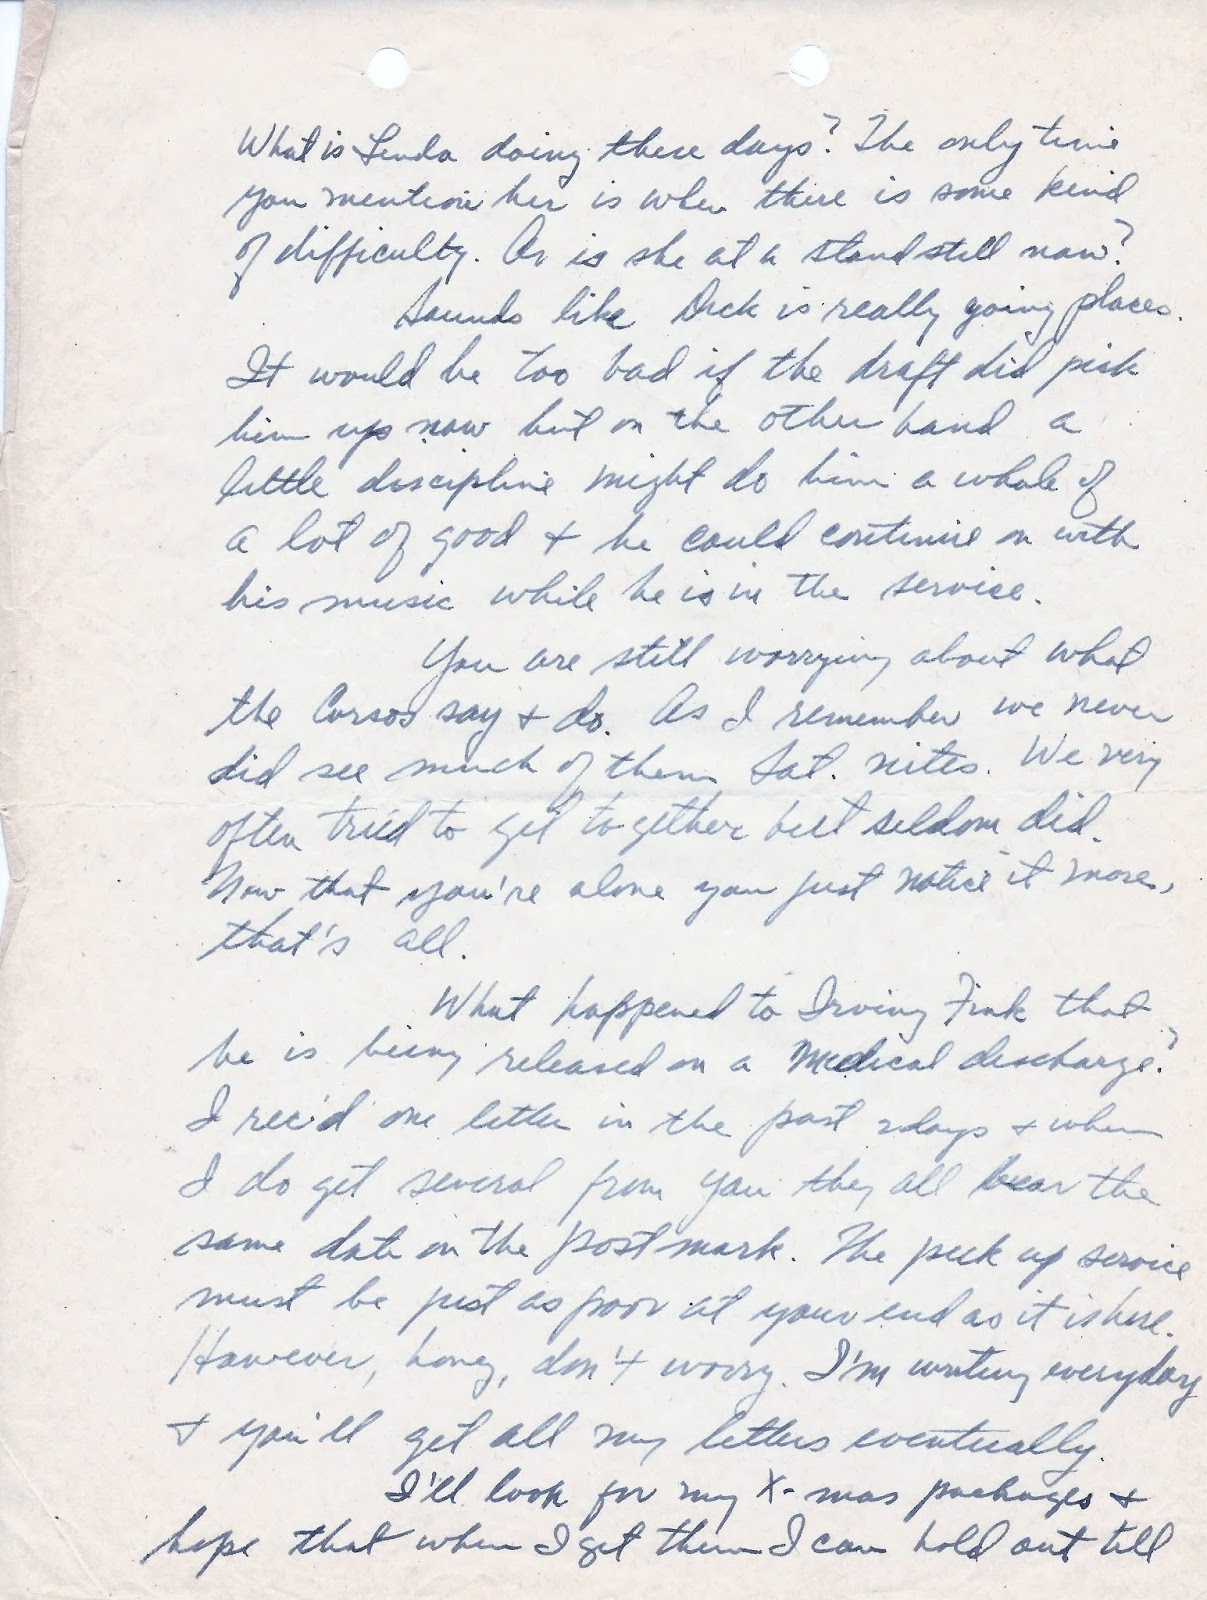 What is Linda doing these days? The only time
you mention her is when there is some kind
of difficulty. Or is she at a standstill now?
Sounds like Dick is really going places.
It would be too bad if the draft did pick
him up now but on the other hand a
little discipline might do him a whole of
a lot of good + he could continue on with
his music while he is in the service.
You are still worrying about what
the Corsos say + do. As I remember we never
did see much of them Sat. nites. We very
often tried to get together but seldom did.
Now that you're alone you just notice it more,
that's all.
What happened to Irving Fink that
he is being released on a Medical discharge?
I rec'd one letter in the past 2 days + when
I do get several from you they all bear the
same date on the post mark. The pick up service
must be just as poor at your end as it is here.
However, honey, don't worry. I'm writing everyday
+ you'll get all my letters eventually.
I'll look for my X-mas packages +
hope that when I get them I can hold out till